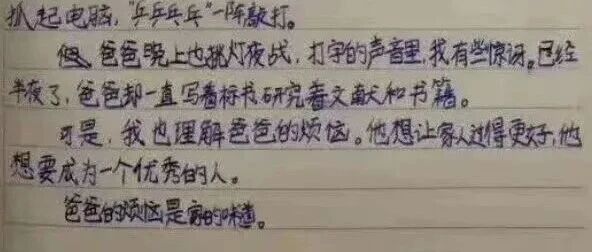 抓起电脑，“乒乒乓乓”一阵敲打。
但，爸爸晚上也挑灯夜战，打字的声音里，我有些惊讶。已经
半夜了，爸爸却一直写着标书研究着文献和书籍。
可是，我也理解爸爸的烦恼。他想让家人过得更好，他
想要成为一个优秀的人。
爸爸的烦恼是家的味道。